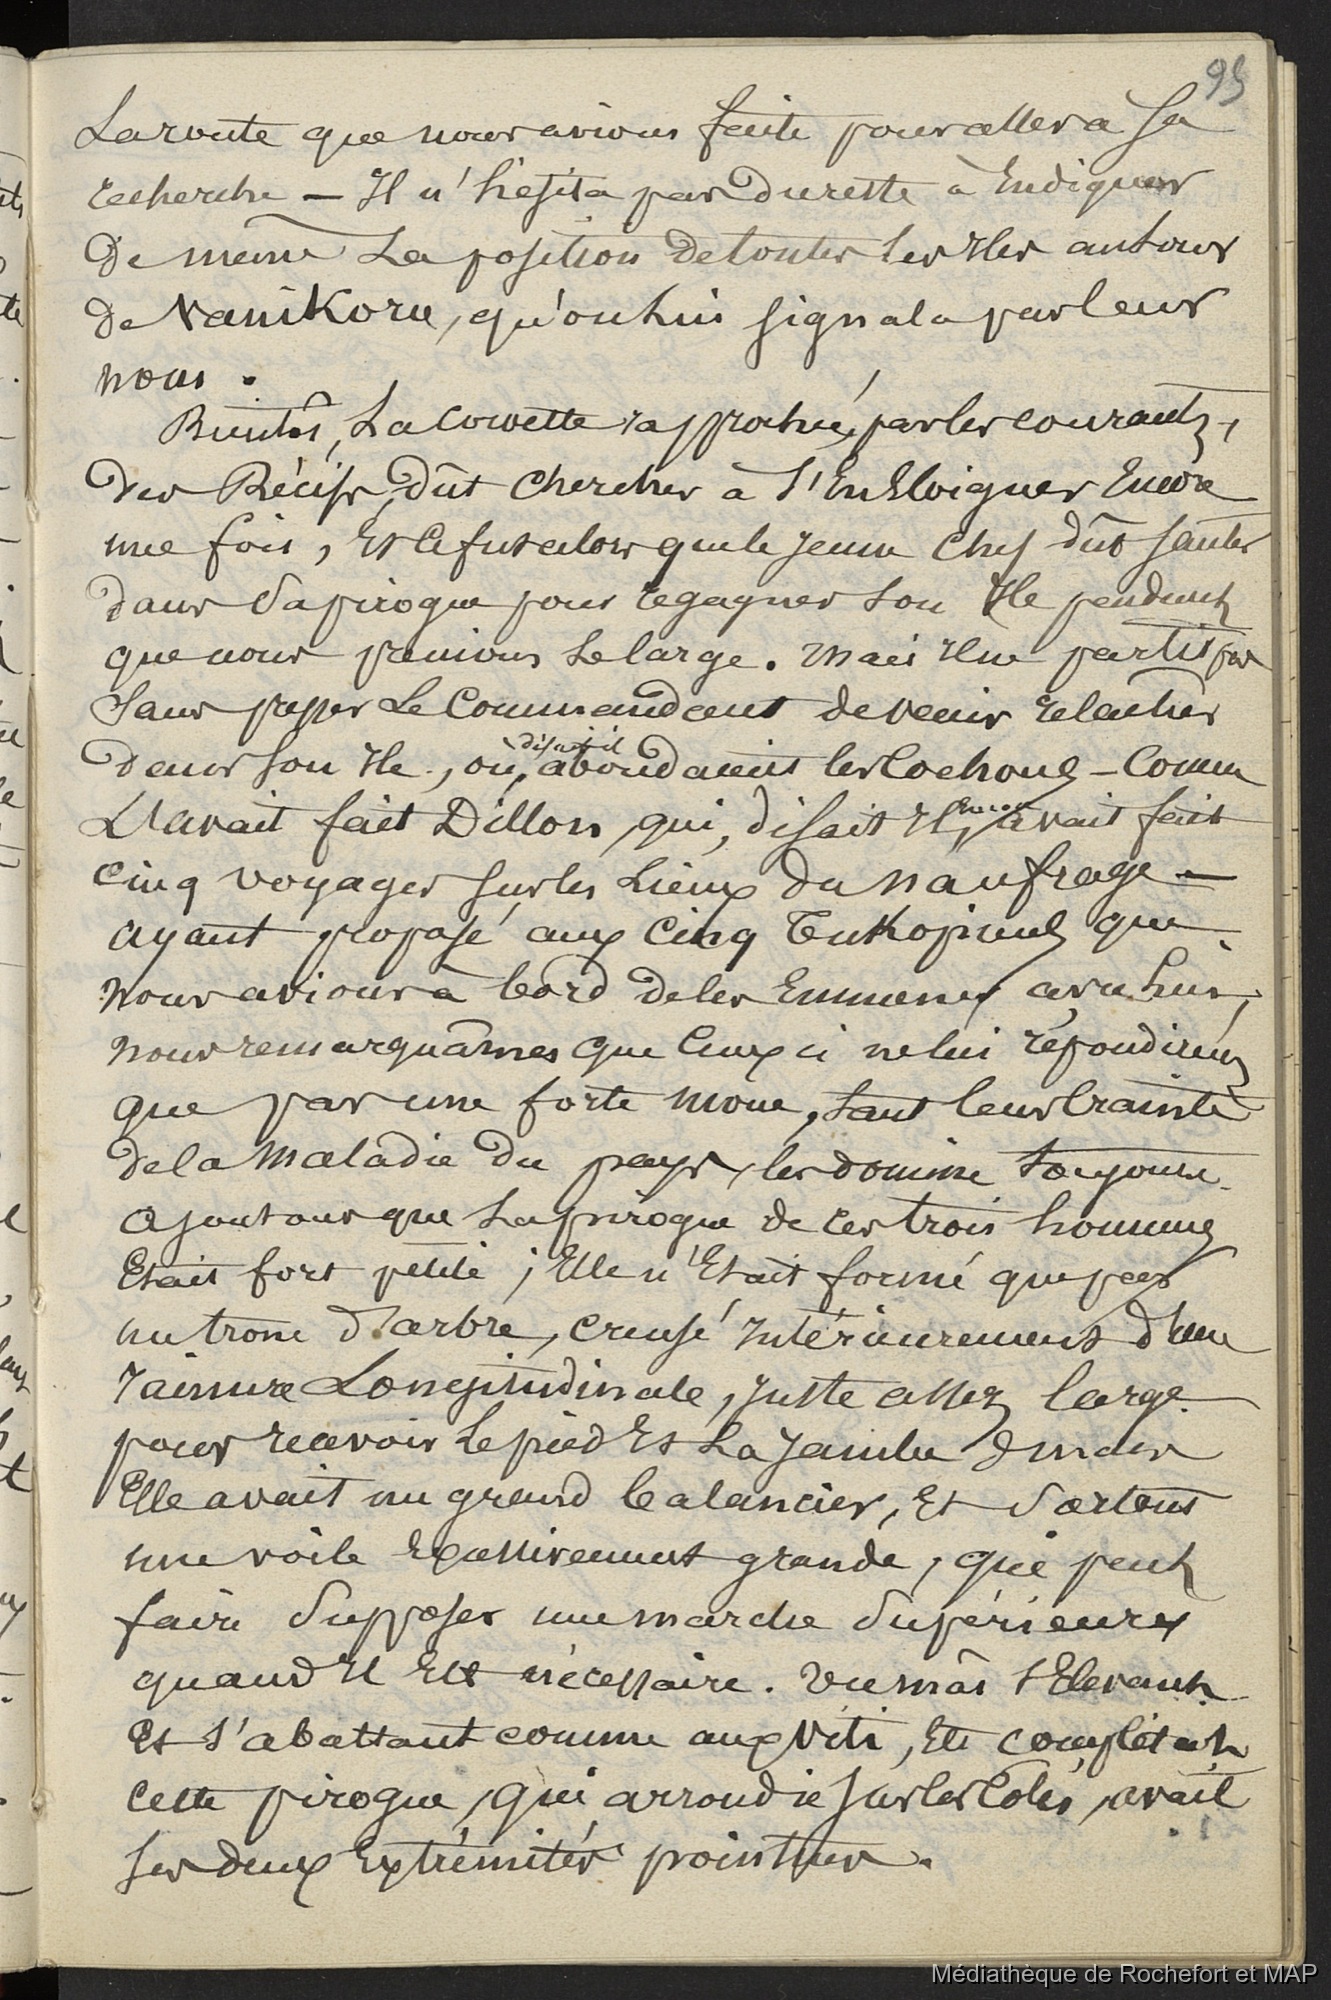 95
La route que nous avions faite pour aller a sa
recherche — Il n'hésita pas du reste à Indiquer
de même La position de toutes les Iles autour
de Vanikoru, qu'on lui signala par leur
nom.
Bientôt, La Corvette rapprochée, par les courants,
des Récifs, dût chercher à s'En Eloigner Encore
une fois, Et Ce fut alors que le jeune Chef dût sauter
dans Sa pirogue pour regagner son Ile pendant
que nous prenions Le large. Mais Il ne partit pas
Sans presser Le Commandant de venir relacher
dans son Ile, où, disait-il abondaient les Cochons – Comme
L'avait fait Dillon, qui, disait Il, Encore avait fait
Cinq voyages sur les Lieux du naufrage —
ayant proposé aux Cinq Tukopiens que
nous avions à bord de les Emmener avec lui,
nous remarquâmes que Ceux ci ne lui répondirent
que par une forte moue, tant leur Crainte
de la Maladie du pays, les domine toujours.
Ajoutons que La pirogue de ces trois hommes
Etait fort petite ; Elle n'Etait formé que par
un tronc d'arbre, creusé Intérieurement d'une
rainure Longitudinale, juste assez large
pour recevoir Le pied Et La Jambe du nir
Elle avait un grand balancier, Et Surtout
une voile Excessivement grande, qui peut
faire Supposer une marche Supérieure
quand Il Est nécessaire. Un mât s'Elevant
Et s'abattant comme aux Viti, Etc complétait
Cette pirogue, qui arrondie sur les Côtés, avait
ses deux Extrémités pointues.
Médiathèque de Rochefort et MAP